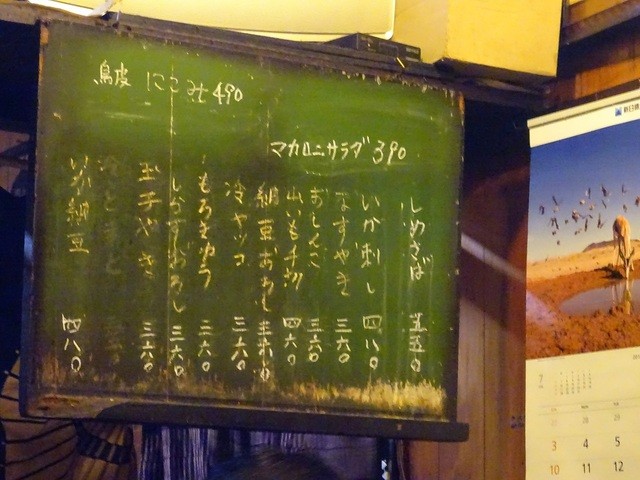 鳥皮 にこみ 490
マカロニサラダ 390
しめさば 五五〇
いか刺し 四八〇
なすやき 三六〇
おしんこ 三六〇
山いも千切 四六〇
納豆おろし 三六〇
冷ヤッコ 三六〇
もろきゅう 三六〇
しらすおろし 三六〇
玉子やき 三六〇
冷とまと
いか納豆 四八〇
7
3 4 5
10 11 12